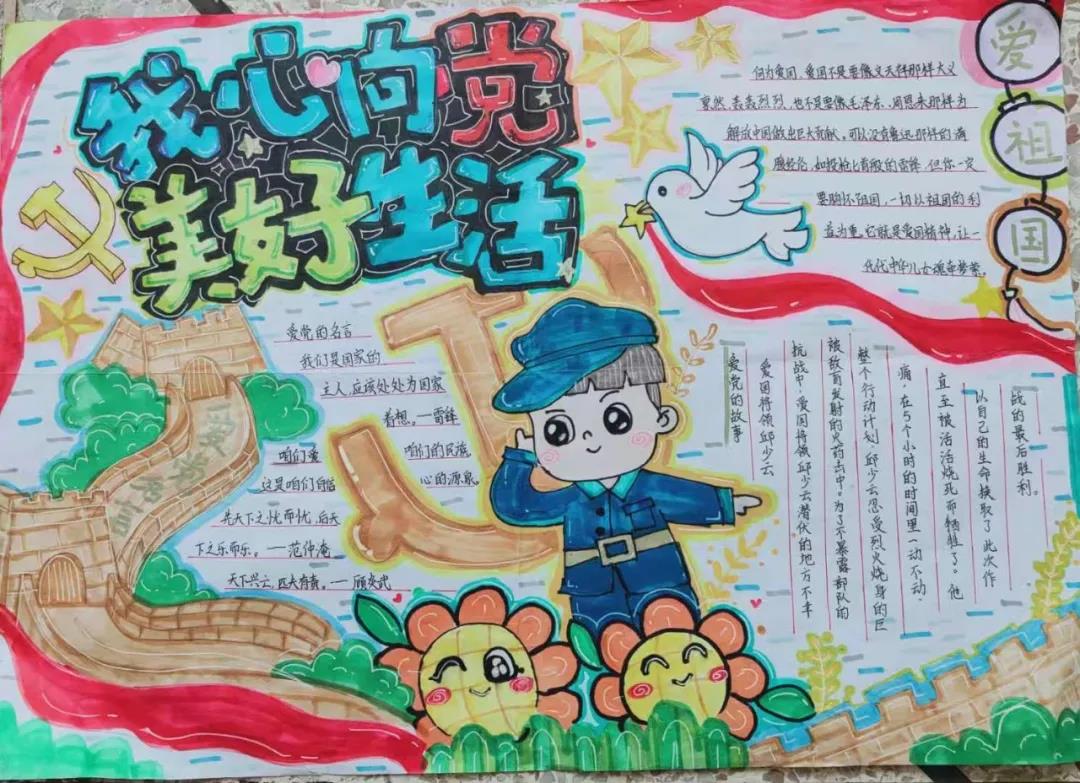 我心向党
美好生活
爱祖国
何为爱国,爱国不是要像文天祥那样大义
然、轰轰烈烈,也不是要像毛泽东、周恩来那样为
解放中国做出巨大贡献,可以没有鲁迅那样的满
腹经纶,如投枪匕首般的雷锋,但你一定
要胸怀祖国,一切以祖国的利
益为重,它就是爱国精神,让一
代代中华儿女魂牵梦萦。
爱党的名言
我们是国家的
主人,应该处处为国家
着想。—雷锋
咱们爱 咱们的民族
这是咱们自信 心的源泉。
先天下之忧而忧,后天
下之乐而乐。—范仲淹
天下兴亡,匹夫有责。—顾炎武
爱党名言
爱党的故事
爱国将领邱少云
抗战中,爱国将领邱少云潜伏的地方不幸
被敌盲发射的火药击中。为了不暴露部队的
整个行动计划,邱少云忍受烈火烧身的巨
痛,在5个小时的时间里一动不动,
直至被活活烧死而牺牲了。他
以自己的生命换取了此次作
战的最后胜利。